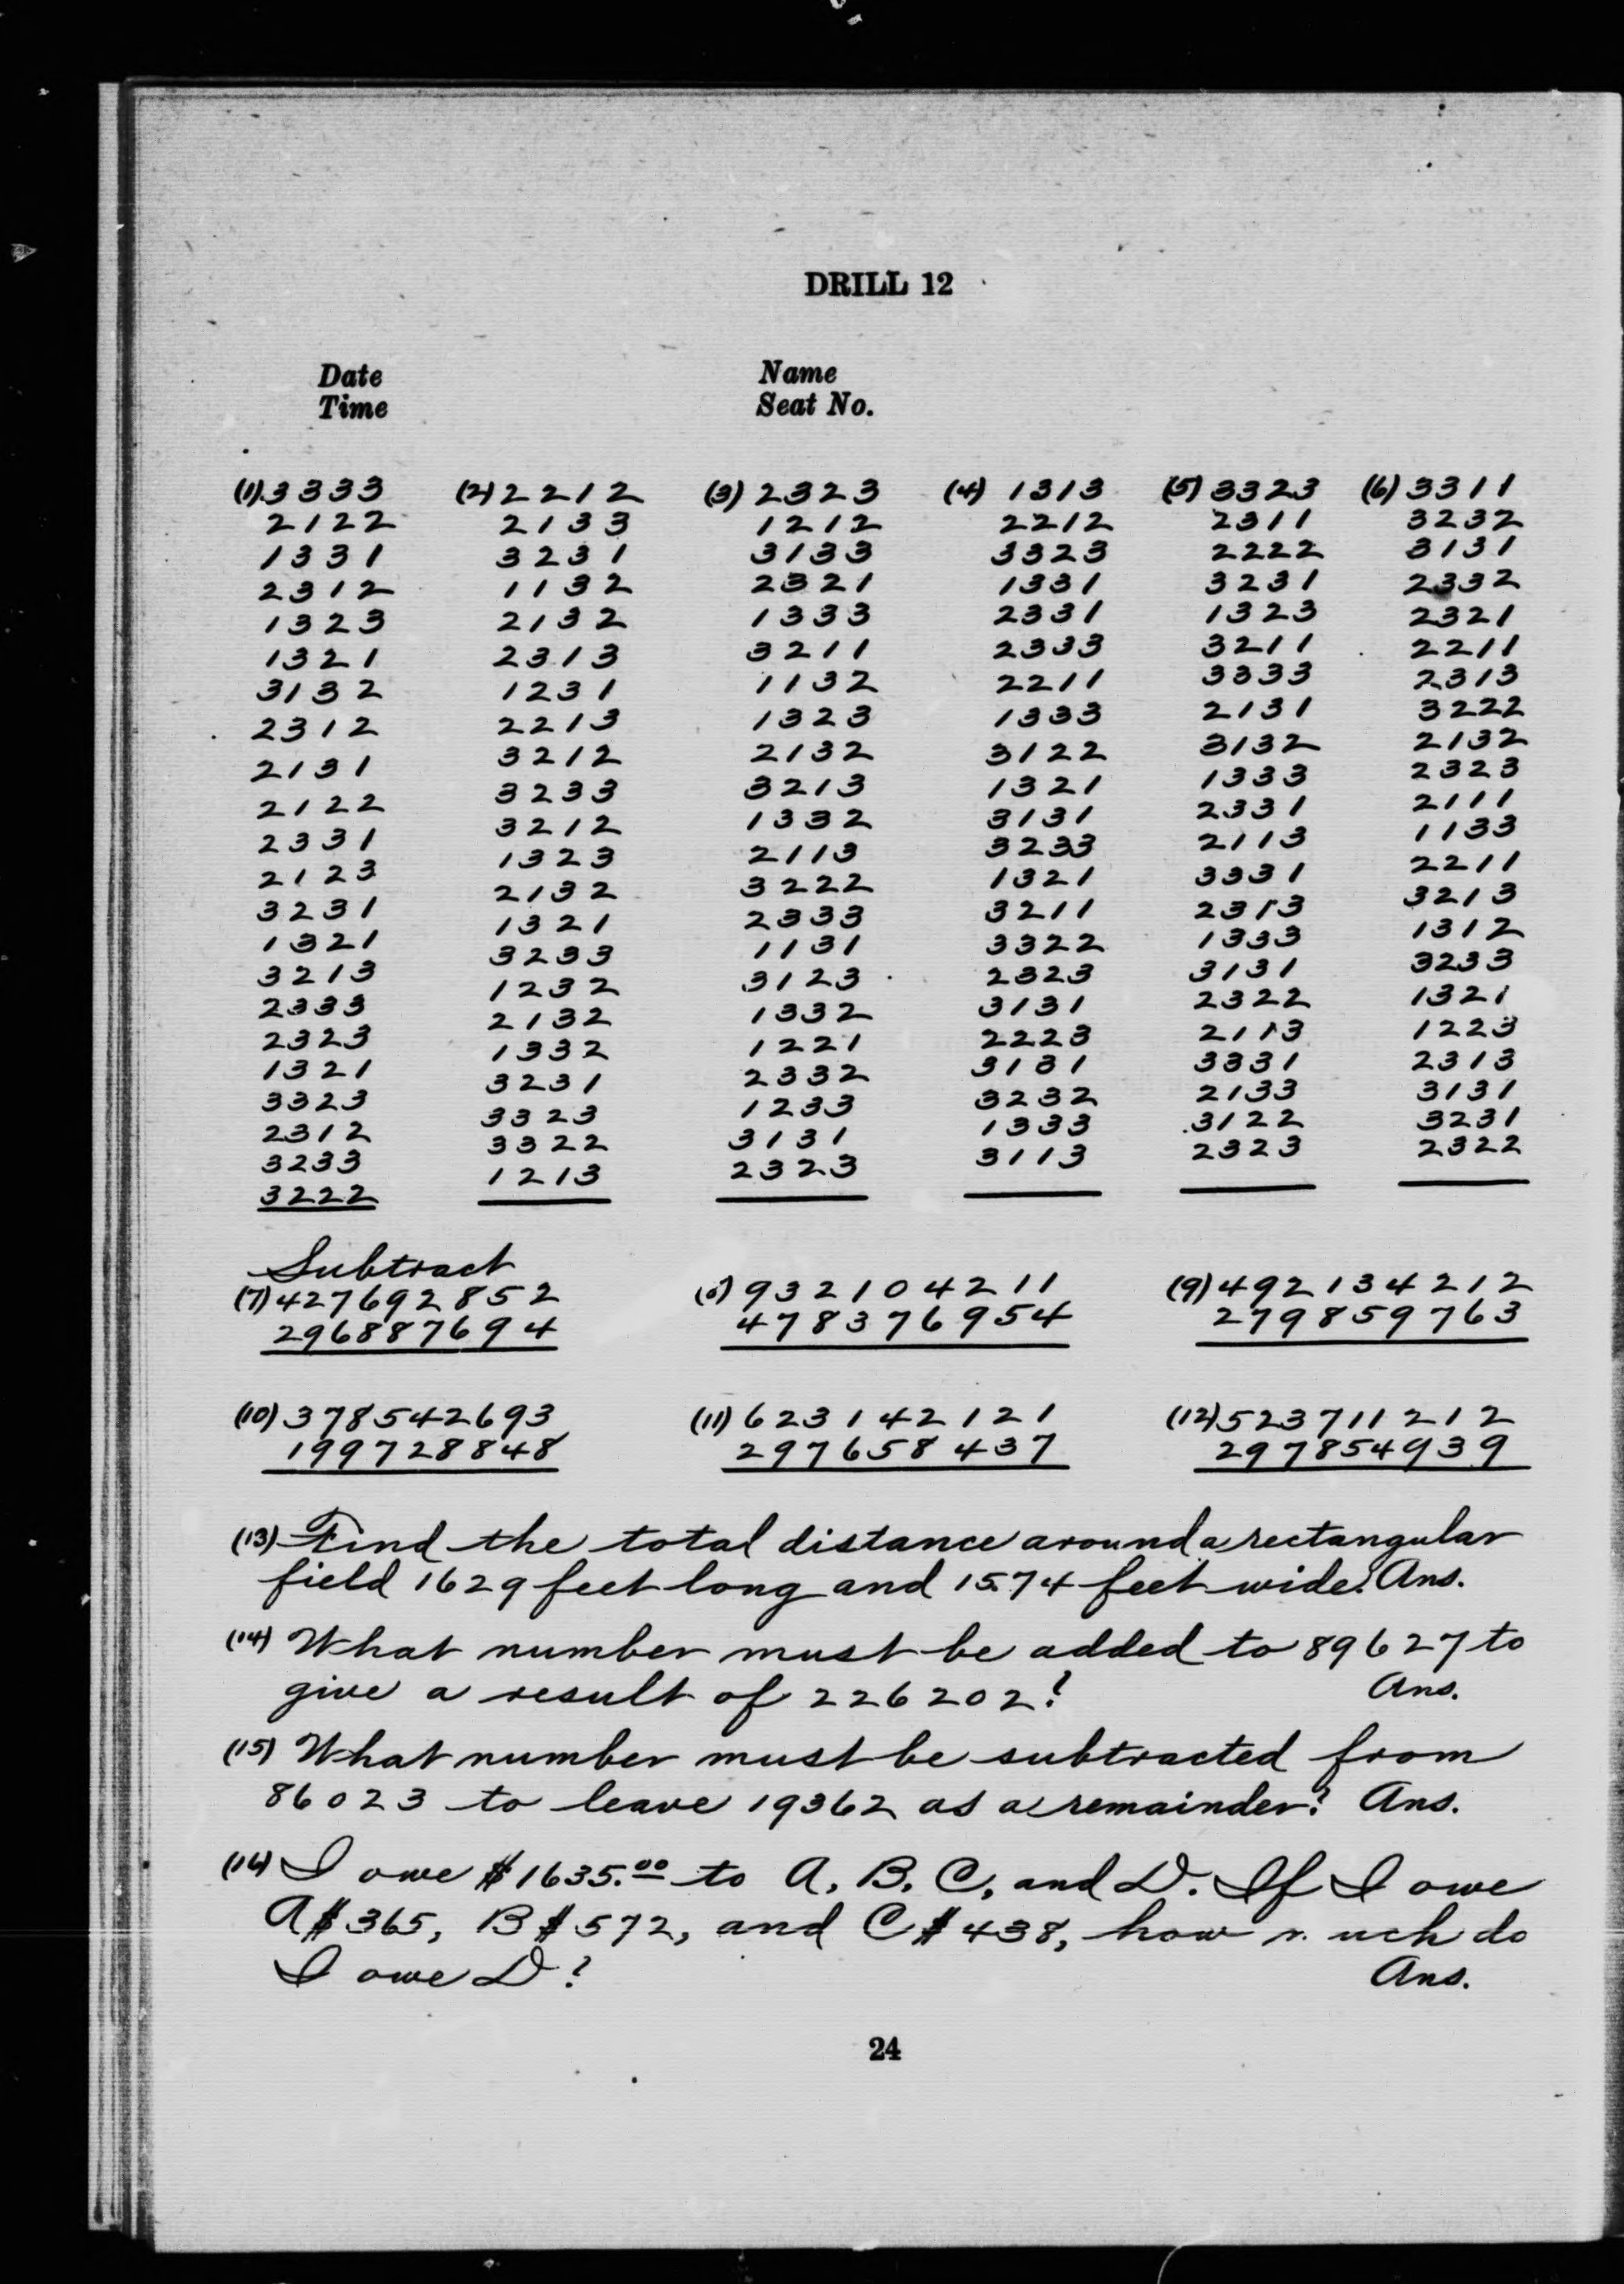 DRILL 12
Date Name
Time Seat No.
(1) 3333 (2) 2212 (3) 2323 (4) 1313 (5) 3323 (6) 3311
2122 2133 1212 2212 2311 3232
1331 3231 3133 3323 2222 3131
2312 1132 2321 1331 3231 2332
1323 2132 1333 2331 1323 2321
1321 2313 3211 2333 3211 2211
3132 1231 1132 2211 3333 2313
2312 2213 1323 1333 2131 3222
2131 3212 2132 3122 3132 2132
2122 3233 3213 1321 1333 2323
2331 3212 1332 3131 2331 2111
2123 1323 2113 3233 2113 1133
3231 2132 3222 1321 3331 2211
1321 1321 2333 3211 2313 3213
3213 3233 1131 3322 1333 1312
2333 1232 3123 2323 3131 3233
2323 2132 1332 3131 2322 1321
1321 1332 1221 2223 2113 1223
3323 3231 2332 3131 3331 2313
2312 3323 1233 3232 2133 3131
3233 3322 3131 1333 3122 3231
3222 1213 2323 3113 2323 2322
Subtract
(7) 427692852 (8) 932104211 (9) 492134212
296887694 478376954 279859763
(10) 378542693 (11) 623142121 (12) 523711212
199728848 297658437 297854939
(13) Find the total distance around a rectangular
field 1629 feet long and 1574 feet wide? Ans.
(14) What number must be added to 89627 to
give a result of 226202? Ans.
(15) What number must be subtracted from
86023 to leave 19362 as a remainder? Ans.
(16) I owe $1635.00 to A, B, C, and D. If I owe
A $365, B $572, and C $438, how much do
I owe D? Ans.
24